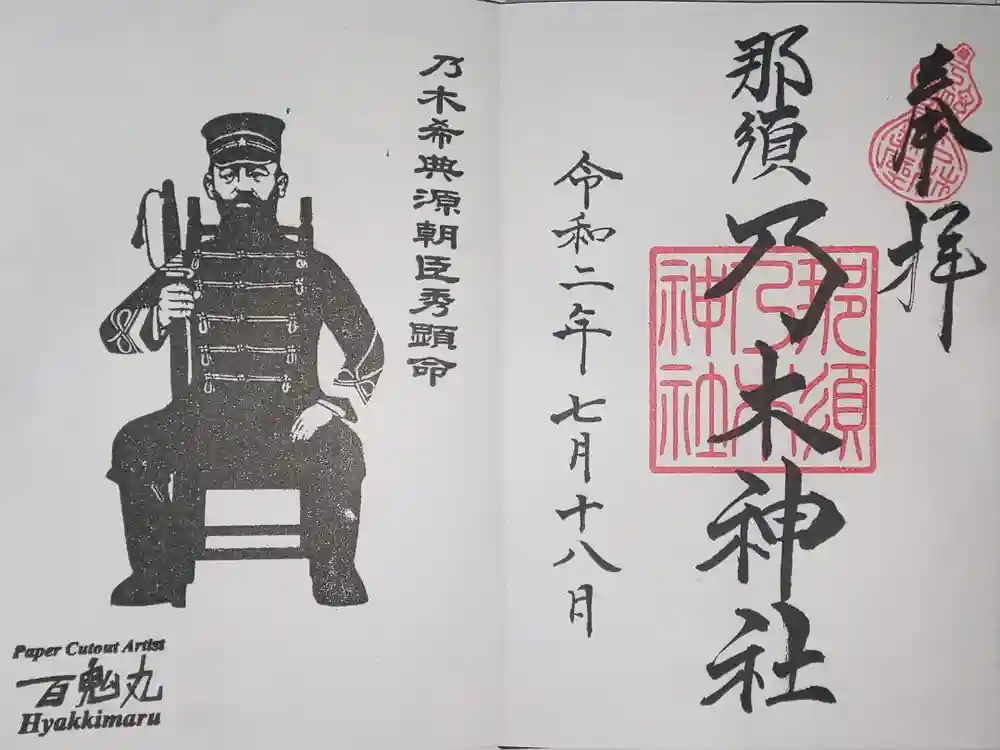 奉拝
那須乃木神社
那須乃木神社
令和二年七月十八日
乃木希典源朝臣秀顕命
Paper Cutout Artist
百鬼丸
Hyakkimaru